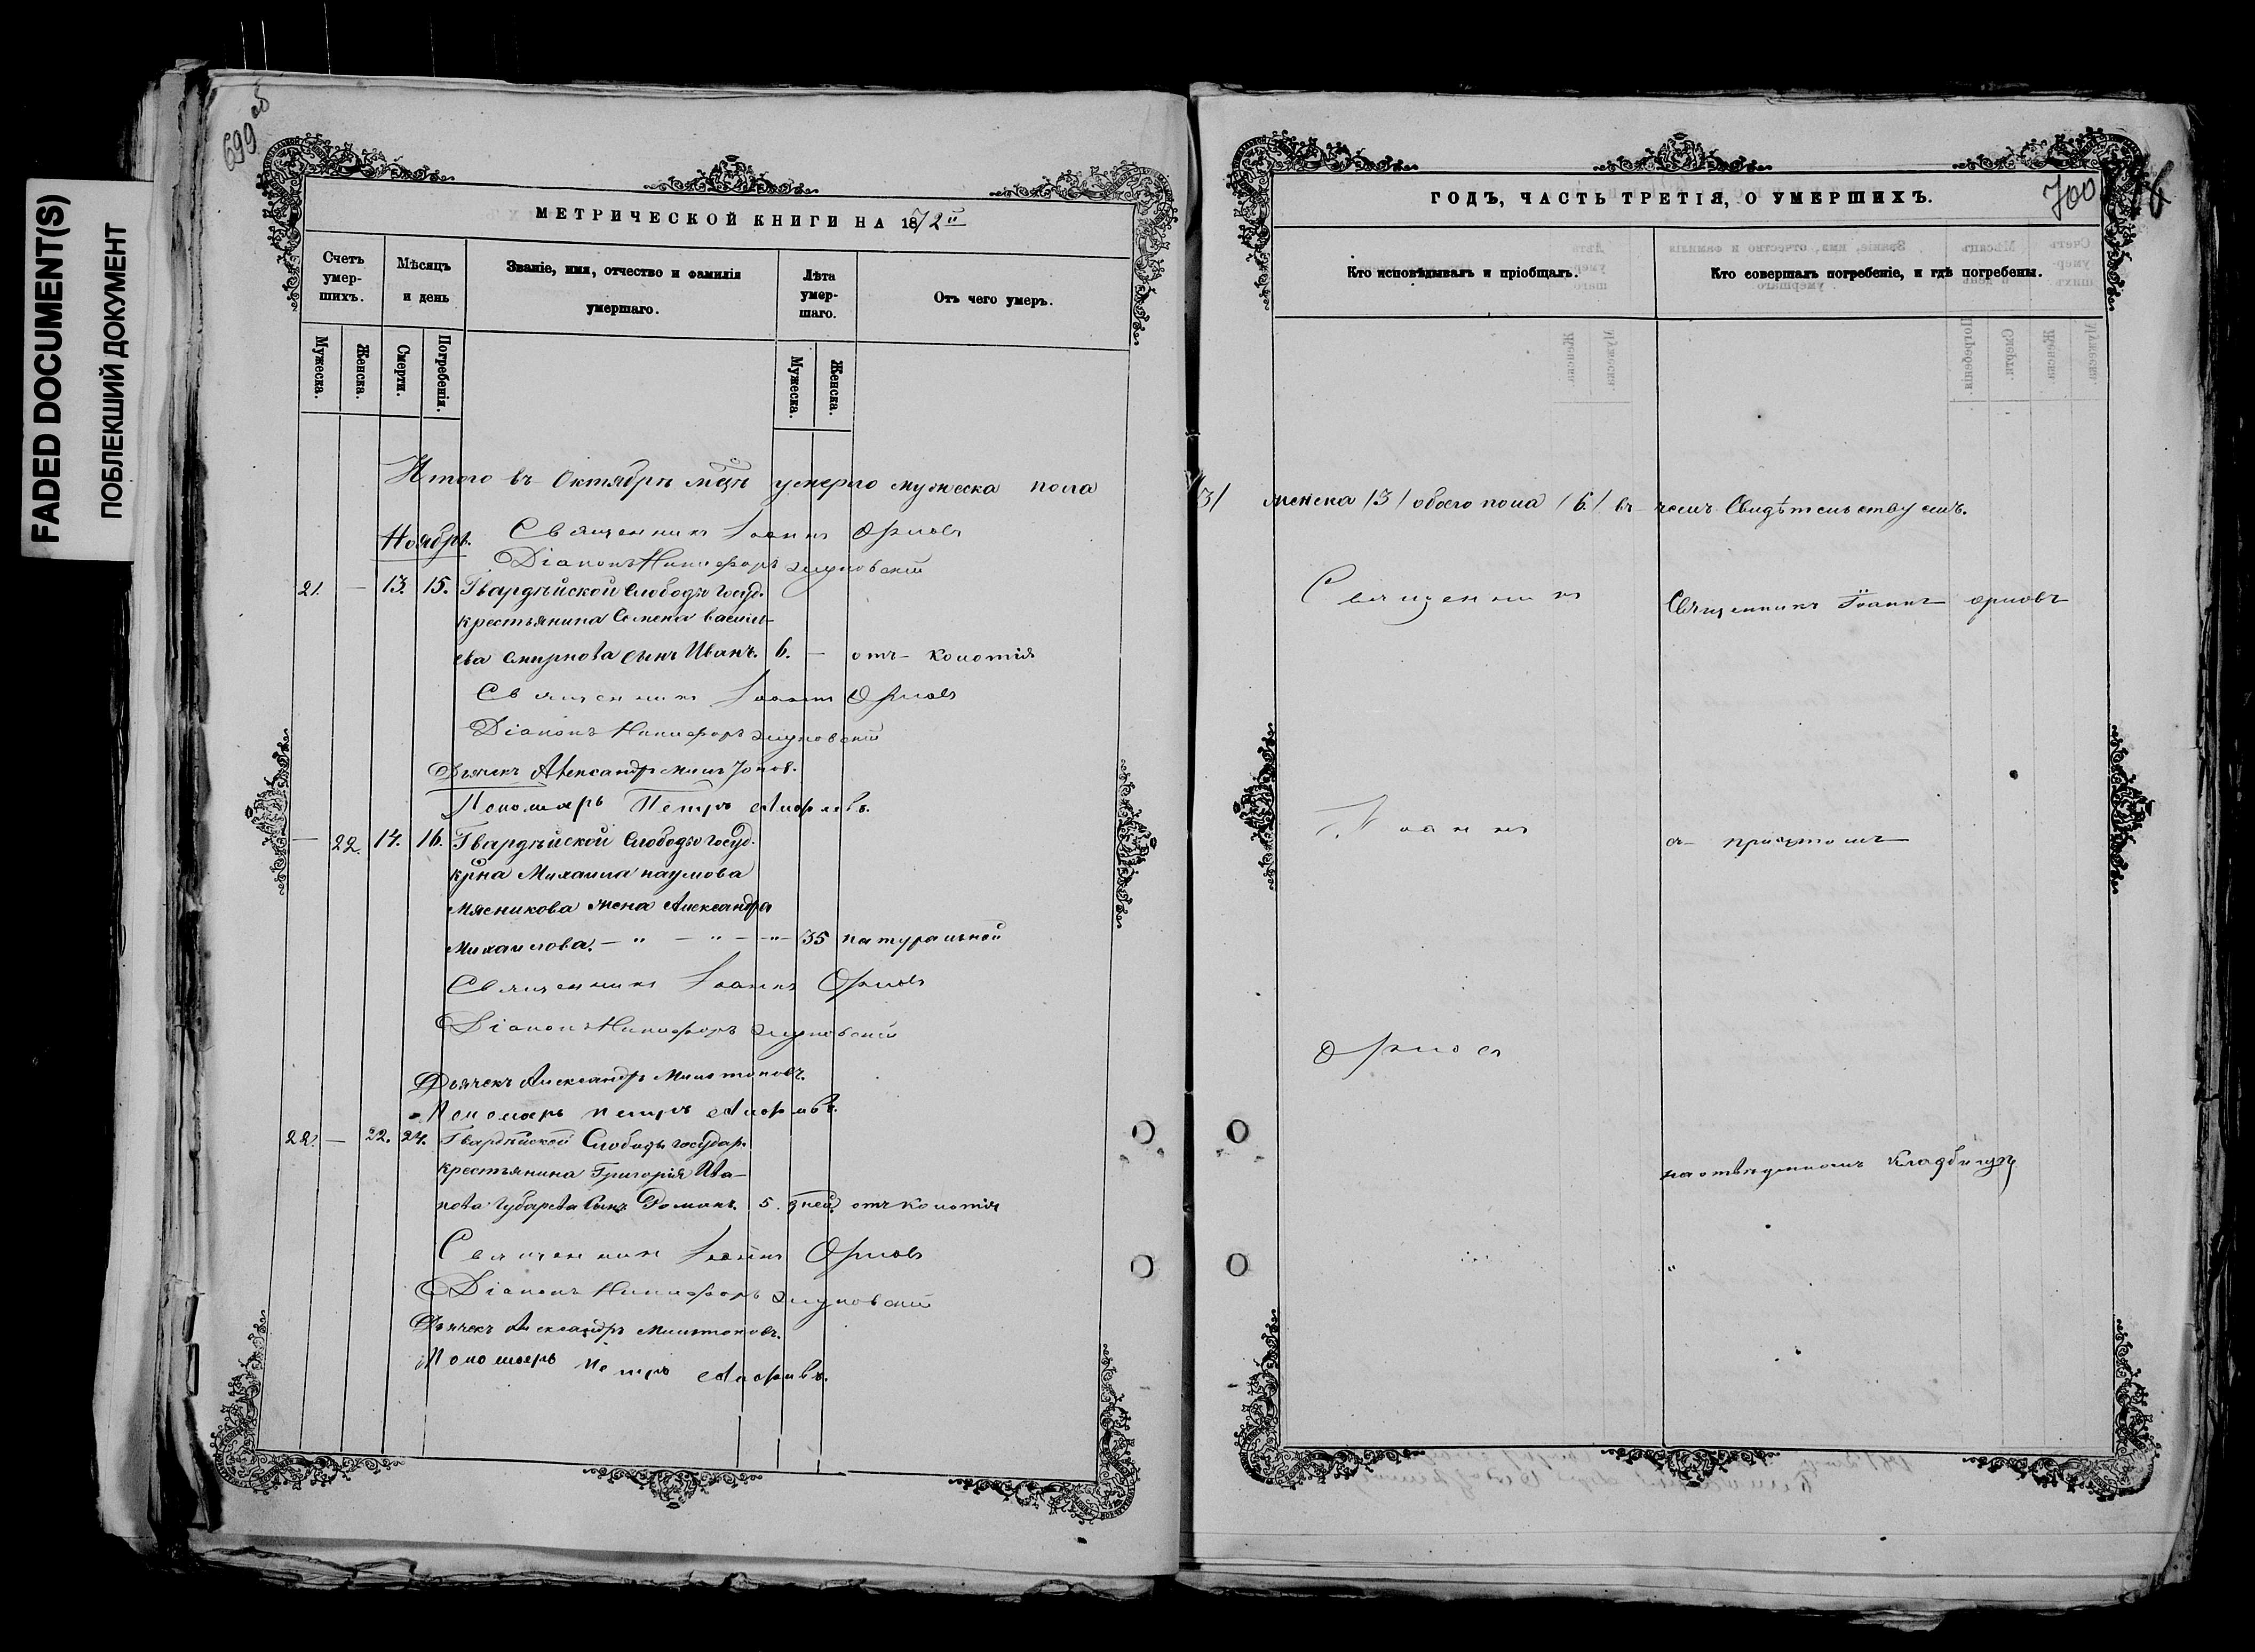 FADED DOCUMENT(S)
ПОБЛЕКШИЙ ДОКУМЕНТ
699 об
МЕТРИЧЕСКОЙ КНИГИ НА 1872й
Счетъ умершихъ.
Мужеска.
Женска.
Мѣсяцъ и день
Смерти.
Погребенія.
Званіе, имя, отчество и фамилія умершаго.
Лѣта умершаго.
Мужеска.
Женска.
Отъ чего умеръ.
Итого въ Октябрѣ мцѣ умерло мужеска пола
Ноябрь. Священникъ Іоаннъ Орловъ
Діаконъ Никифоръ
21. — 13. 15. Гвардѣйской Слободы госуд.
крестьянина Семена Василь-
ева Смирнова сынъ Иванъ. 6. — отъ колотія
Священникъ Іоаннъ Орловъ
Діаконъ Никифоръ
Дьячекъ Александръ Милътонов.
Пономарь Петръ
— 22. 14. 16. Гвардѣйской Слободы госуд.
крна Михаила Наумова
Мясникова жена Александра
Михаилова. — " — " — " — 35 натуральной
Священникъ Іоаннъ Орловъ
Діаконъ Никифоръ
Дьячекъ Александръ Милътоновъ.
Пономарь Петръ
22. — 22. 24. Гвардѣйской Слободы государ.
крестьянина Григорія Ива-
нова Губарева сынъ Романъ. 5. дней. отъ колотія
Священникъ Іоаннъ Орловъ
Діаконъ Никифоръ
Дьячекъ Александръ Милътоновъ.
Пономарь Петръ
ГОДЪ, ЧАСТЬ ТРЕТІЯ, О УМЕРШИХЪ.
700
Кто исповѣдывалъ и пріобщалъ.
Кто совершалъ погребеніе, и гдѣ погребены.
/3/ женска /3/ обоего пола /6/ въ чемъ Свидѣтельствуемъ.
Священникъ
Іоаннъ
Орловъ
Священникъ Іоаннъ Орловъ
съ причтомъ
на отведенномъ кладбищѣ